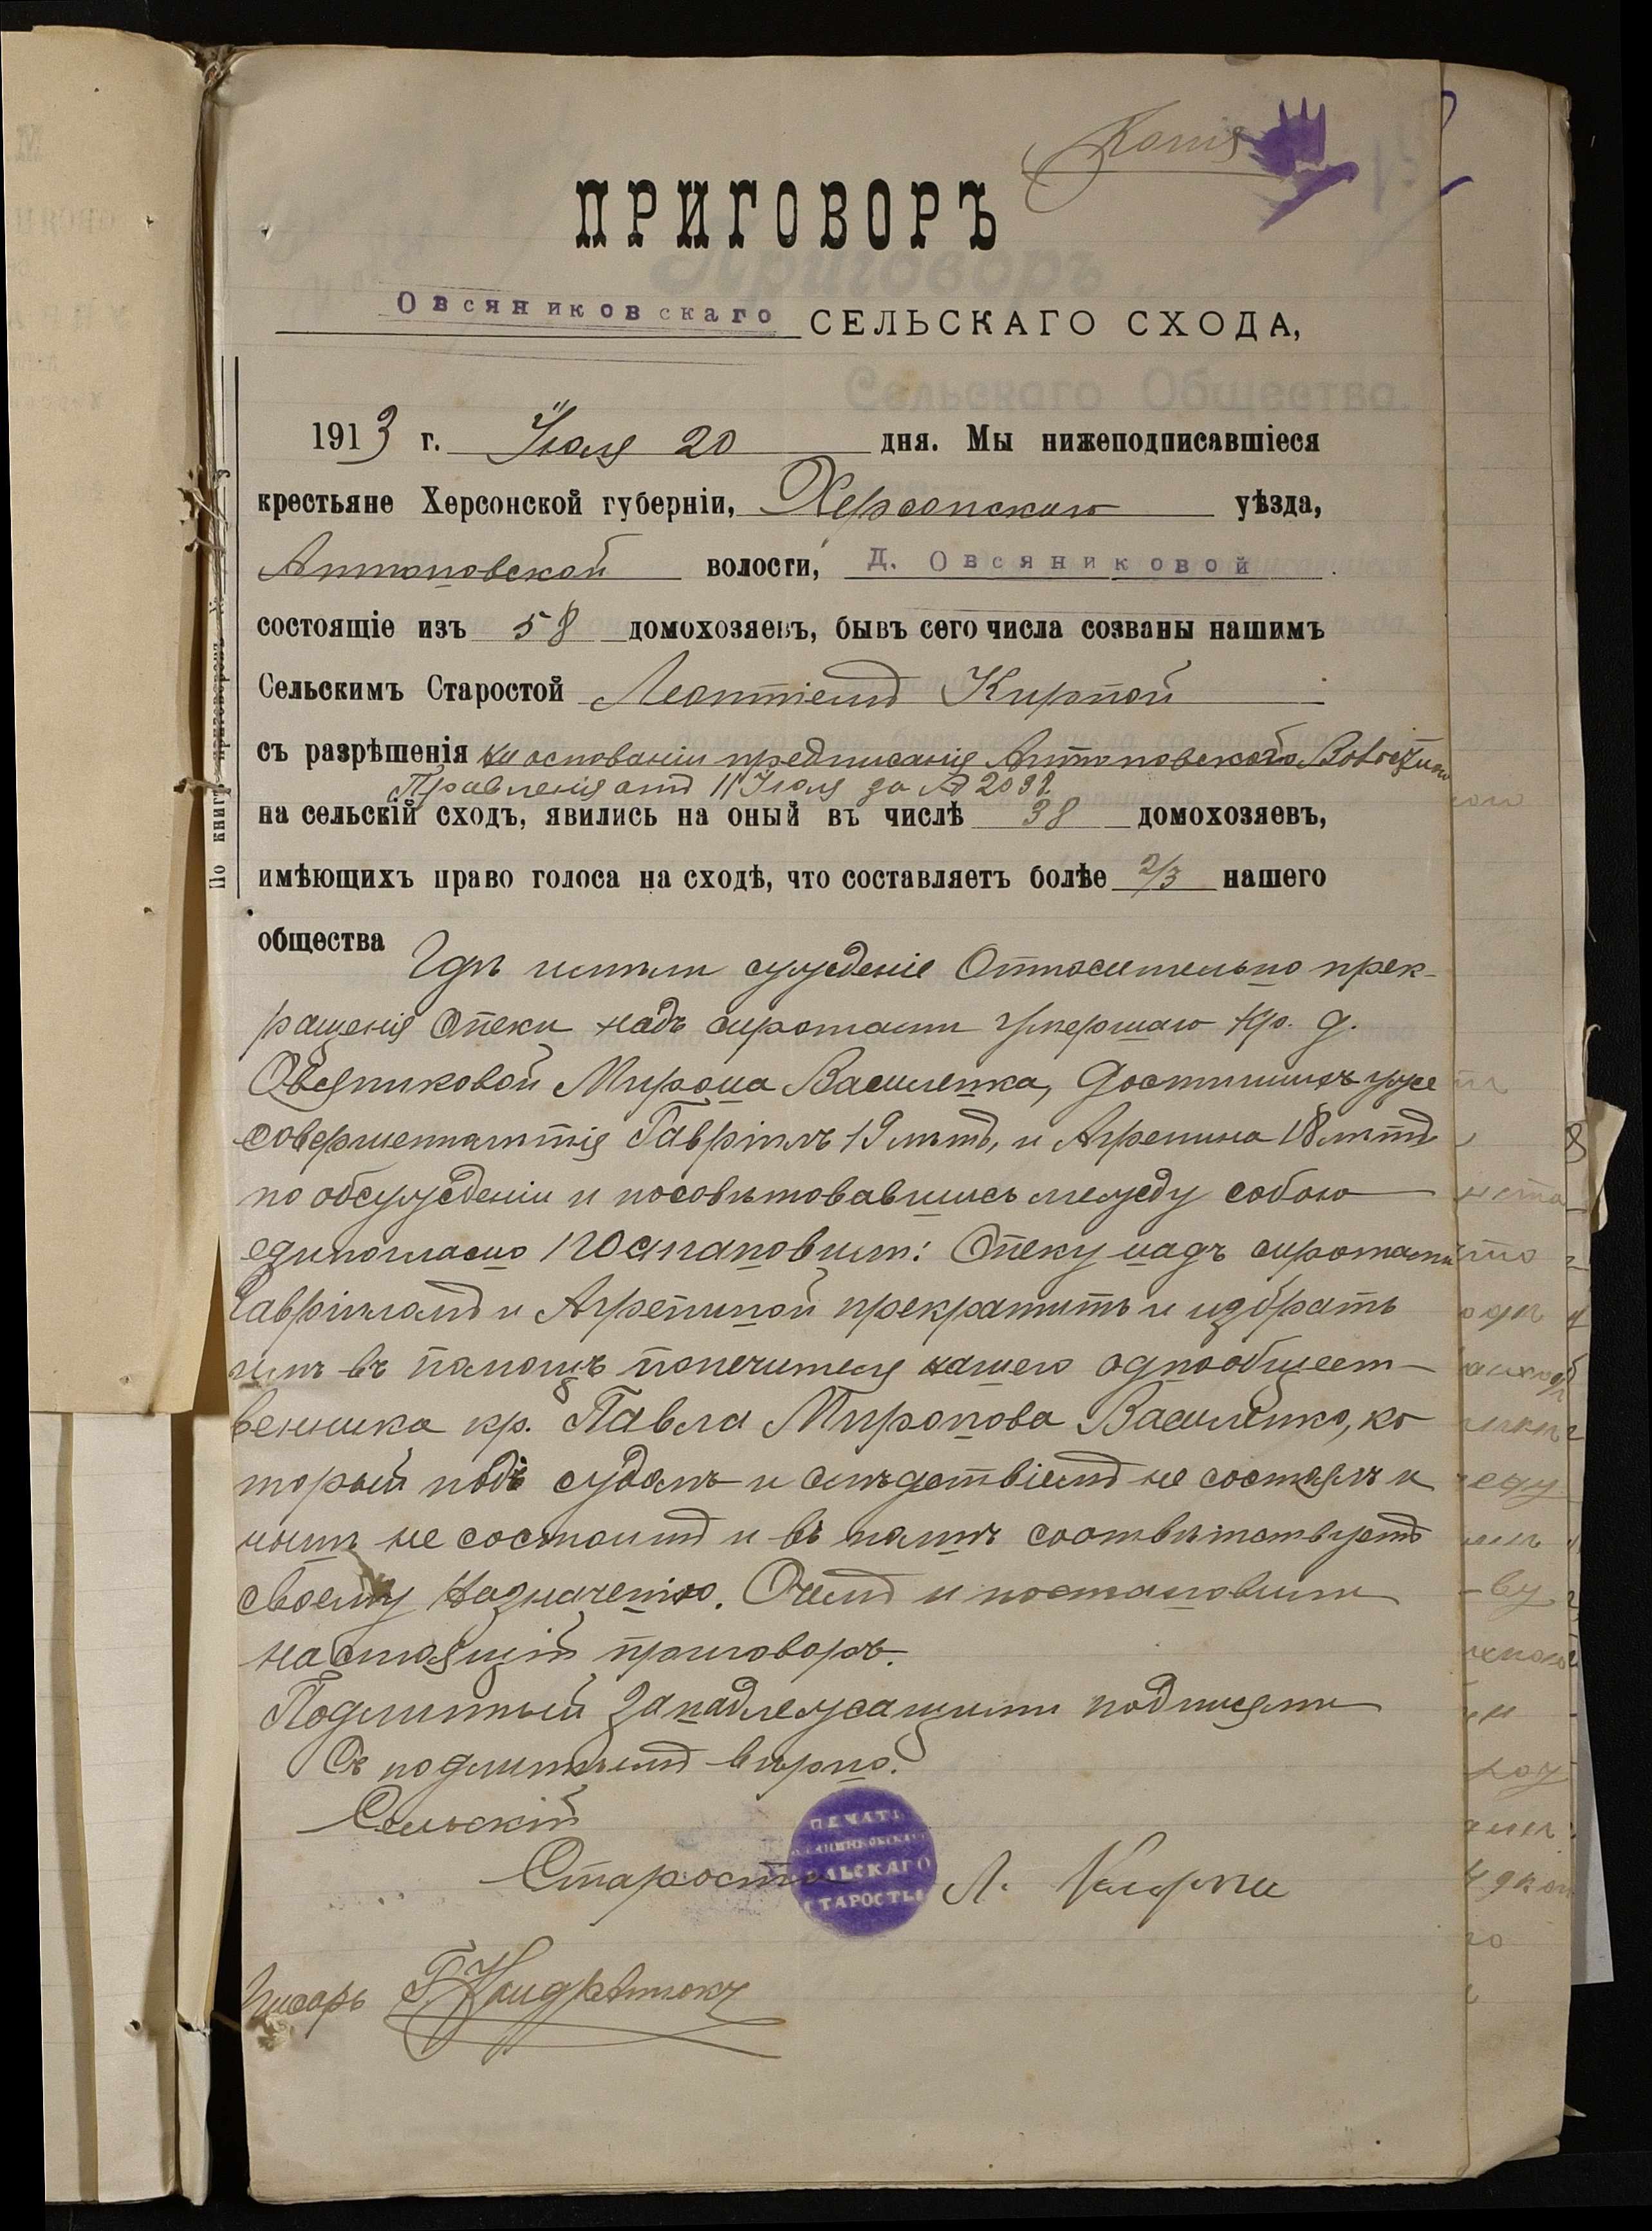 Копія
ПРИГОВОРЪ
Овсяниковскаго СЕЛЬСКАГО СХОДА,
1913 г. Июля 20 дня. Мы нижеподписавшіеся
крестьяне Херсонской губерніи, Херсонскаго уѣзда,
Антоновской волости, Д. Овсяниковой
состоящіе изъ 58 домохозяевъ, бывъ сего числа созваны нашимъ
Сельскимъ Старостой Леонтіемъ Кирпой
съ разрѣшенія на основаніи предписанія Антоновскаго Волостного
Правленія отъ 11 Июля за №
на сельскій сходъ, явились на оный въ числѣ 38 домохозяевъ,
имѣющихъ право голоса на сходѣ, что составляетъ болѣе 2/3 нашего
общества
Гдѣ имѣли сужденіе Относительно прек-
ращенія Опеки надъ сиротами умершаго кр. д.
Овсяниковой Мирона Василенка, достигшихъ уже
совершеннолѣтія Гавріилъ 19 лѣтъ, и Агрепина 18 лѣтъ
по обсужденіи и посовѣтовавшись между собою
единогласно Постановили: Опеку надъ сиротами
Гавріиломъ и Агрепиной прекратить и избрать
имъ въ помощь попечителя нашего однообщест-
венника кр. Павла Миронова Василенко, ко
торый подъ судомъ и слѣдствіемъ не состоялъ и
нынѣ не состоитъ и въ полнѣ соотвѣтствуетъ
своему назначенію. О чемъ и постановили
настоящій приговоръ.
Подлинный за надлежащими подписями
Съ подлиннымъ вѣрно.
Сельскій
Староста Л. Кирпа
ПЕЧАТЬ
СЕЛЬСКАГО
СТАРОСТЫ
Писарь
По книгѣ приговоровъ №